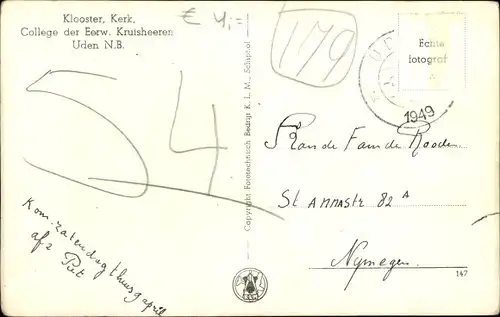 Klooster, Kerk,
College der Eerw. Kruisheeren
Uden N.B.
€ 4,-
179
54
UDEN
1949
Echte
fotograf
Copyright Fototechnisch Bedrijf K. L. M., Schiphol
Fam de Rooden
St Annastr 82 A
Nymegen.
Kom zaterdag thuis april
af 2 Piet
147